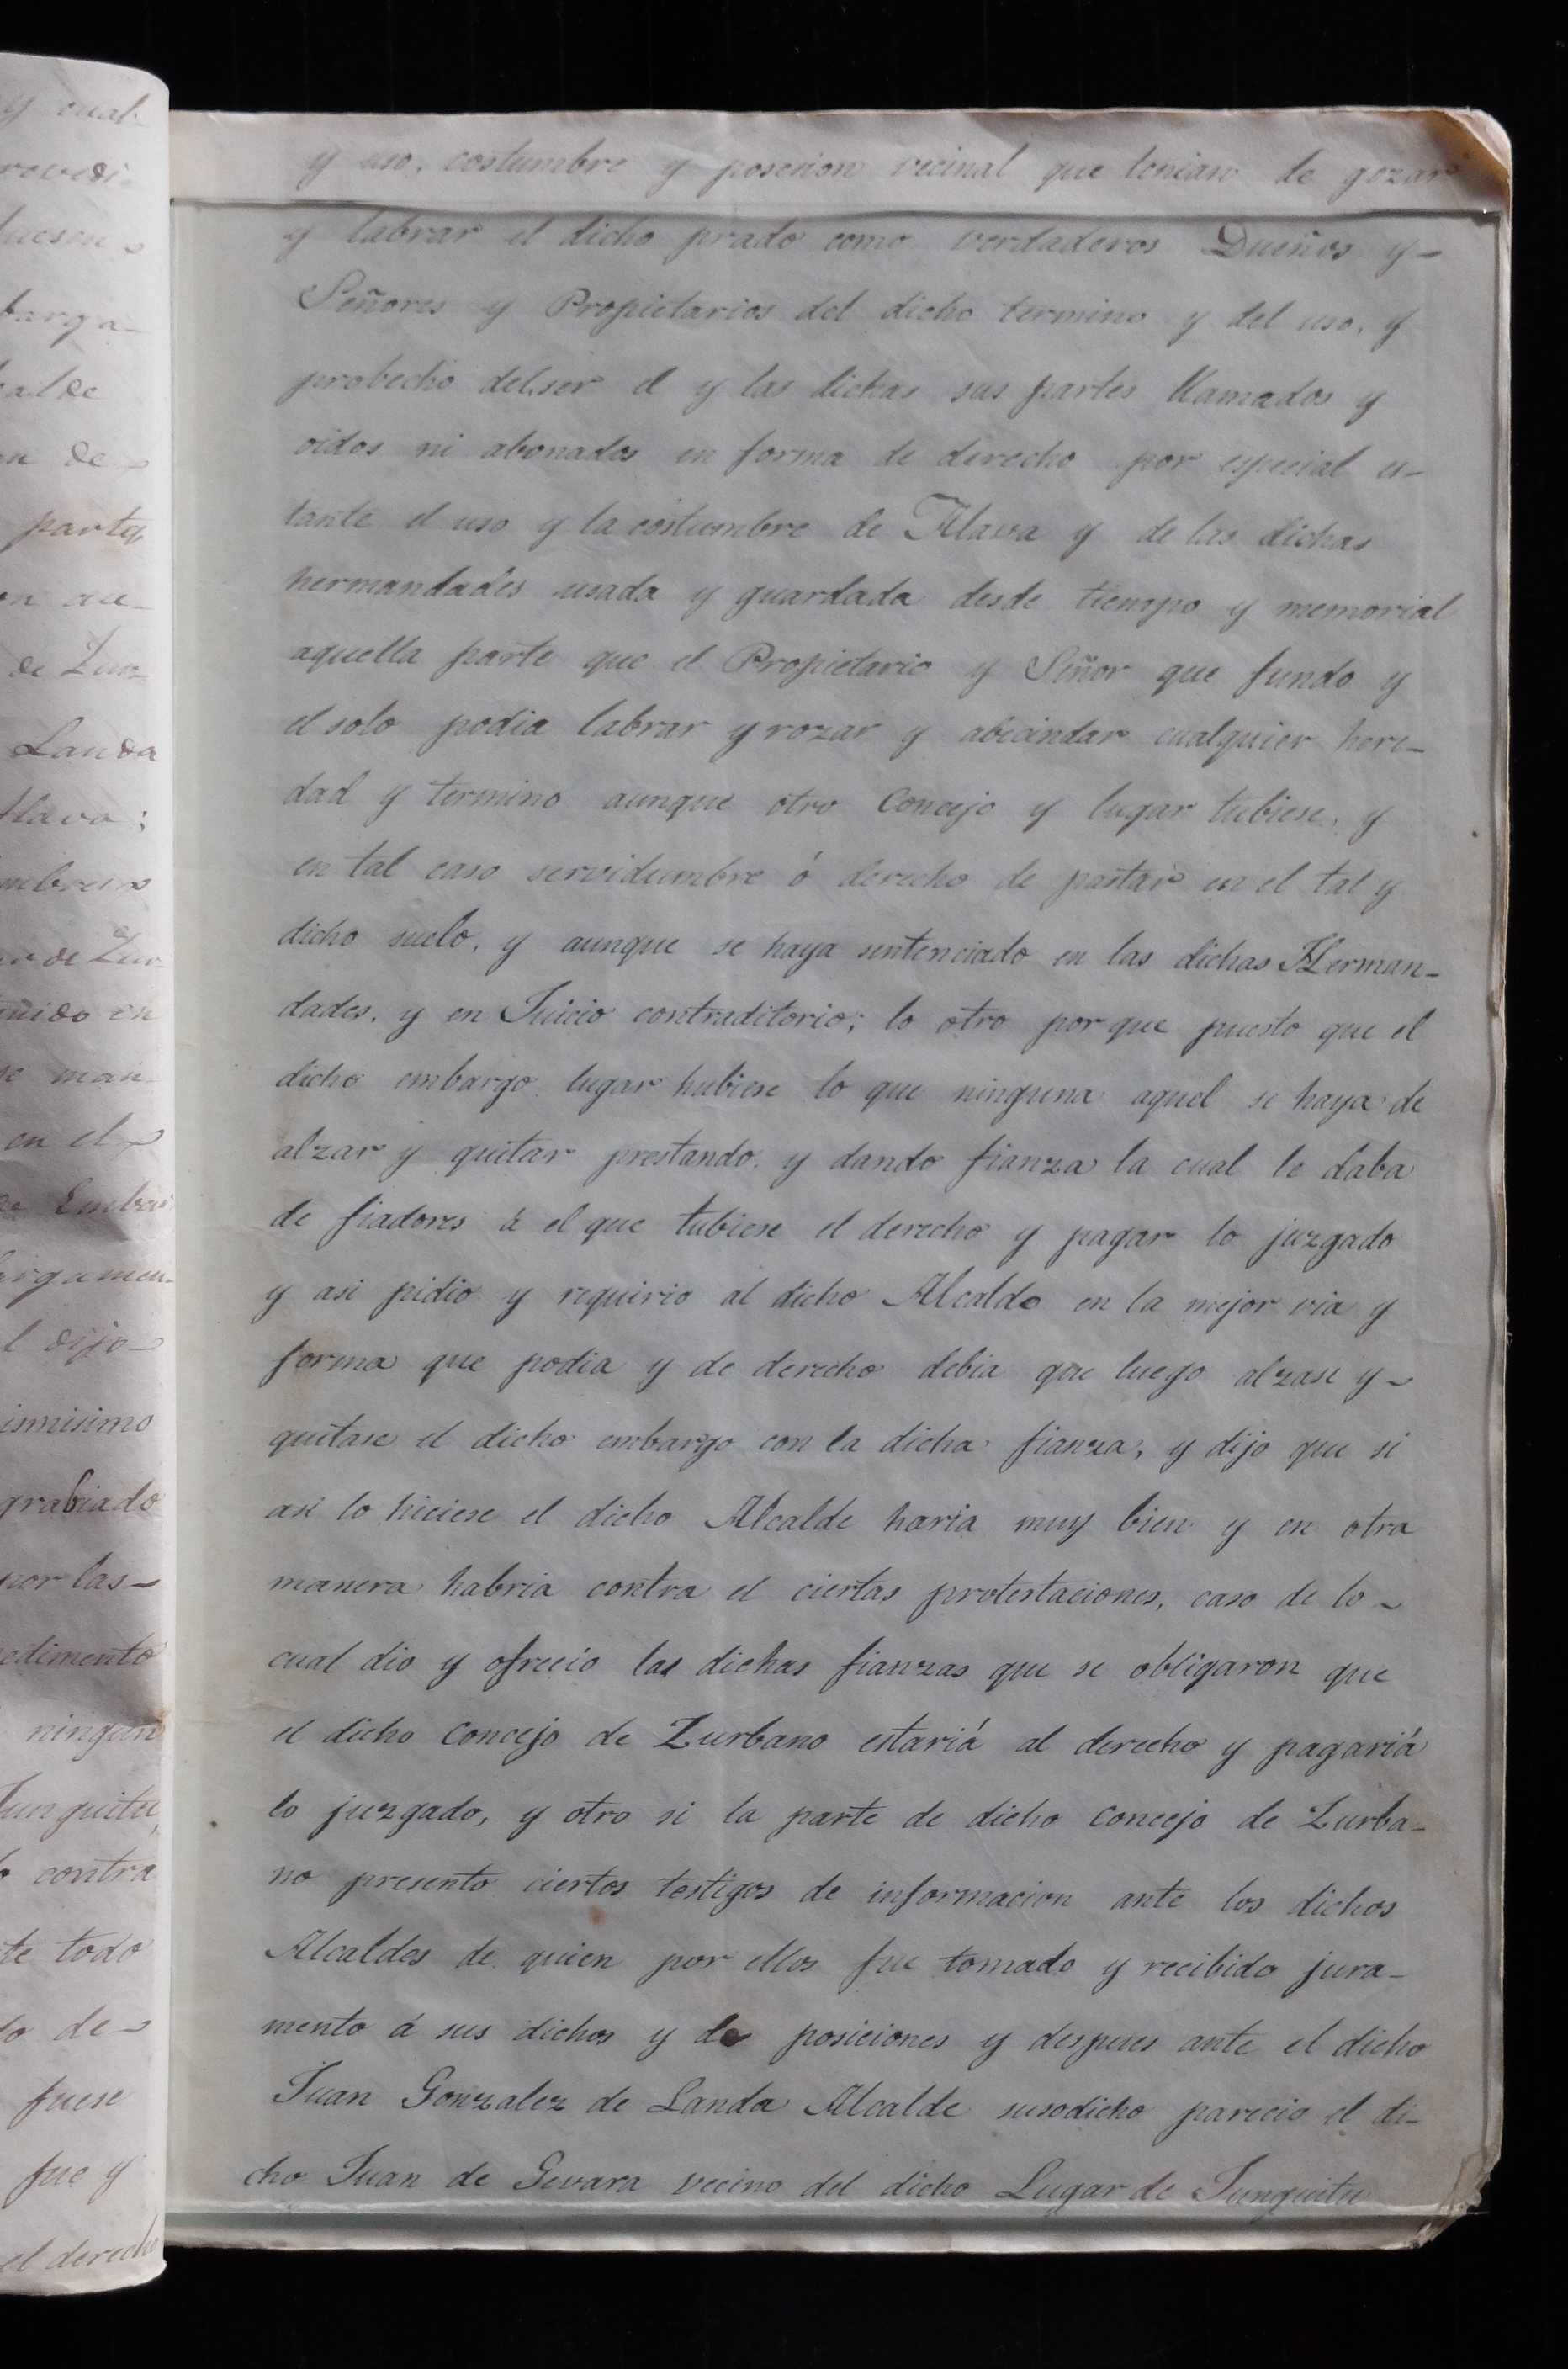 y cual-
rovedi-
hicsen
barga-
alde
n de
parte
on au-
de Zur-
Landa
Alava;
mbrar
de Zur-
nido en
se man-
en el
Emba
argamen-
l dijo
ismisimo
grabiado
por las-
edimento
ningun
Junguitu,
contra
te todo
to de
fuese
fue y
el derecho
y uso, costumbre y posesion vecinal que tenian de gozar
y labrar el dicho prado como verdaderos Dueños y-
Señores y Propietarios del dicho termino y del uso, y
probecho del,ser el y las dichas sus partes llamados y
oidos ni abonados en forma de derecho por especial es-
tante el uso y la costumbre de Alava y de las dichas
hermandades usada y guardada desde tiempo y memorial
aquella parte que el Propietario y Señor que fundo y
el solo podia labrar y rozar y abecindar cualquier here-
dad y termino aunque otro Concejo y lugar tubiese, y
en tal caso servidumbre ó derecho de pastar en el tal y
dicho suelo, y aunque se haya sentenciado en las dichas Herman-
dades, y en Juicio contraditorio; lo otro por que puesto que el
dicho embargo lugar hubiese lo que ninguna aquel se haya de
alzar y quitar prestando, y dando fianza la cual le daba
de fiadores á el que tubiese el derecho y pagar lo juzgado
y asi pidio y requirio al dicho Alcalde en la mejor via y
forma que podia y de derecho debia que luego alzase y-
quitase el dicho embargo con la dicha fianza, y dijo que si
asi lo hiciese el dicho Alcalde haria muy bien y en otra
manera habria contra el ciertas protestaciones, caso de lo-
cual dio y ofrecio las dichas fianzas que se obligaron que
el dicho Concejo de Zurbano estariá al derecho y pagariá
lo juzgado, y otro si la parte de dicho Concejo de Zurba-
no presento ciertos testigos de informacion ante los dichos
Alcaldes de quien por ellos fue tomado y recibido jura-
mento á sus dichos y de posiciones y despues ante el dicho
Juan Gonzalez de Landa Alcalde susodicho parecio el di-
cho Juan de Gevara vecino del dicho Lugar de Junguitu